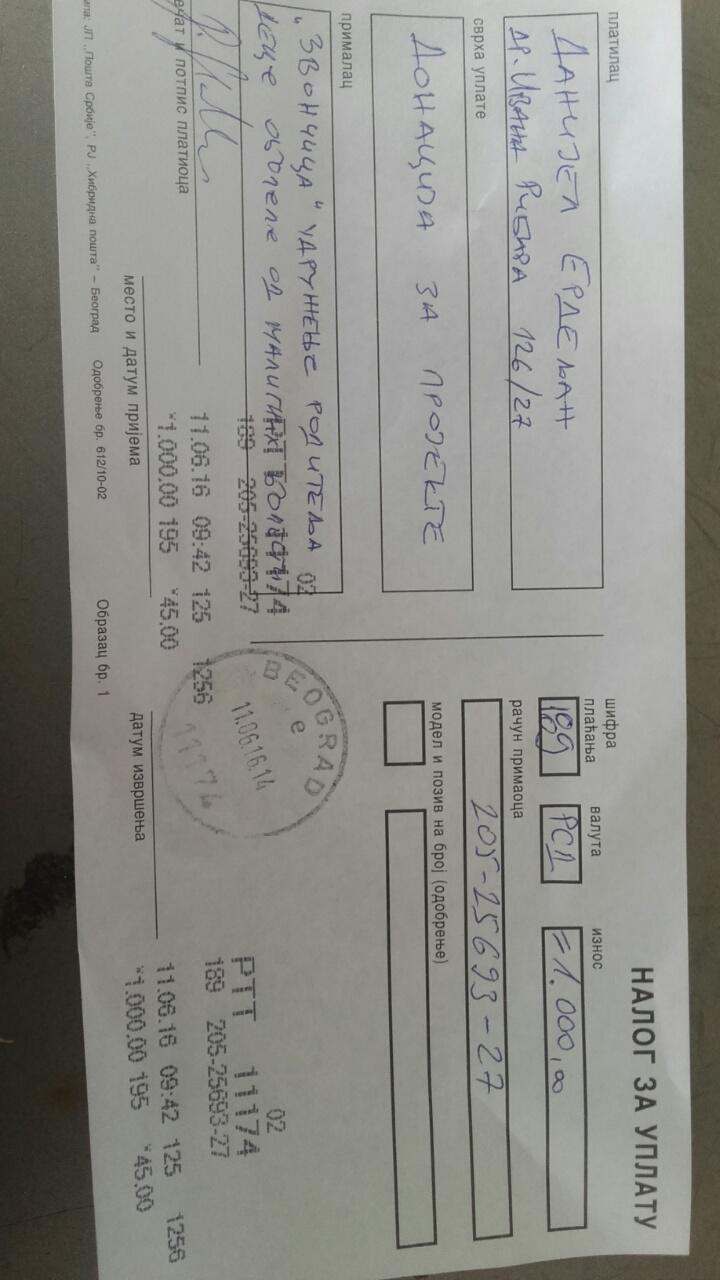 НАЛОГ ЗА УПЛАТУ
платилац
ДАНИЈЕЛ ЕРДЕЉАН
ДР. ИВАНА РИБАРА 126/27
сврха уплате
ДОНАЦИЈА ЗА ПРОЈЕКТЕ
прималац
„ЗВОНЧИЦА“ УДРУЖЕЊЕ РОДИТЕЉА
ДЕЦЕ ОБОЛЕЛЕ ОД МАЛИГНИХ БОЛЕСТИ
шифра плаћања
валута
износ
189
РСД
=1.000,00
рачун примаоца
205-25693-27
модел и позив на број (одобрење)
02
PTT 11174
189 205-25693-27
11.06.16 09:42 125 1256
*1.000.00 195 *45.00
и потпис платиоца
место и датум пријема
BEOGRAD
e
11.06.16.14
11174
02
PTT 11174
189 205-25693-27
11.06.16 09:42 125 1256
*1.000.00 195 *45.00
датум извршења
ЈП „Пошта Србије“, РЈ „Хибридна пошта“ – Београд Одобрење бр. 612/10-02
Образац бр. 1